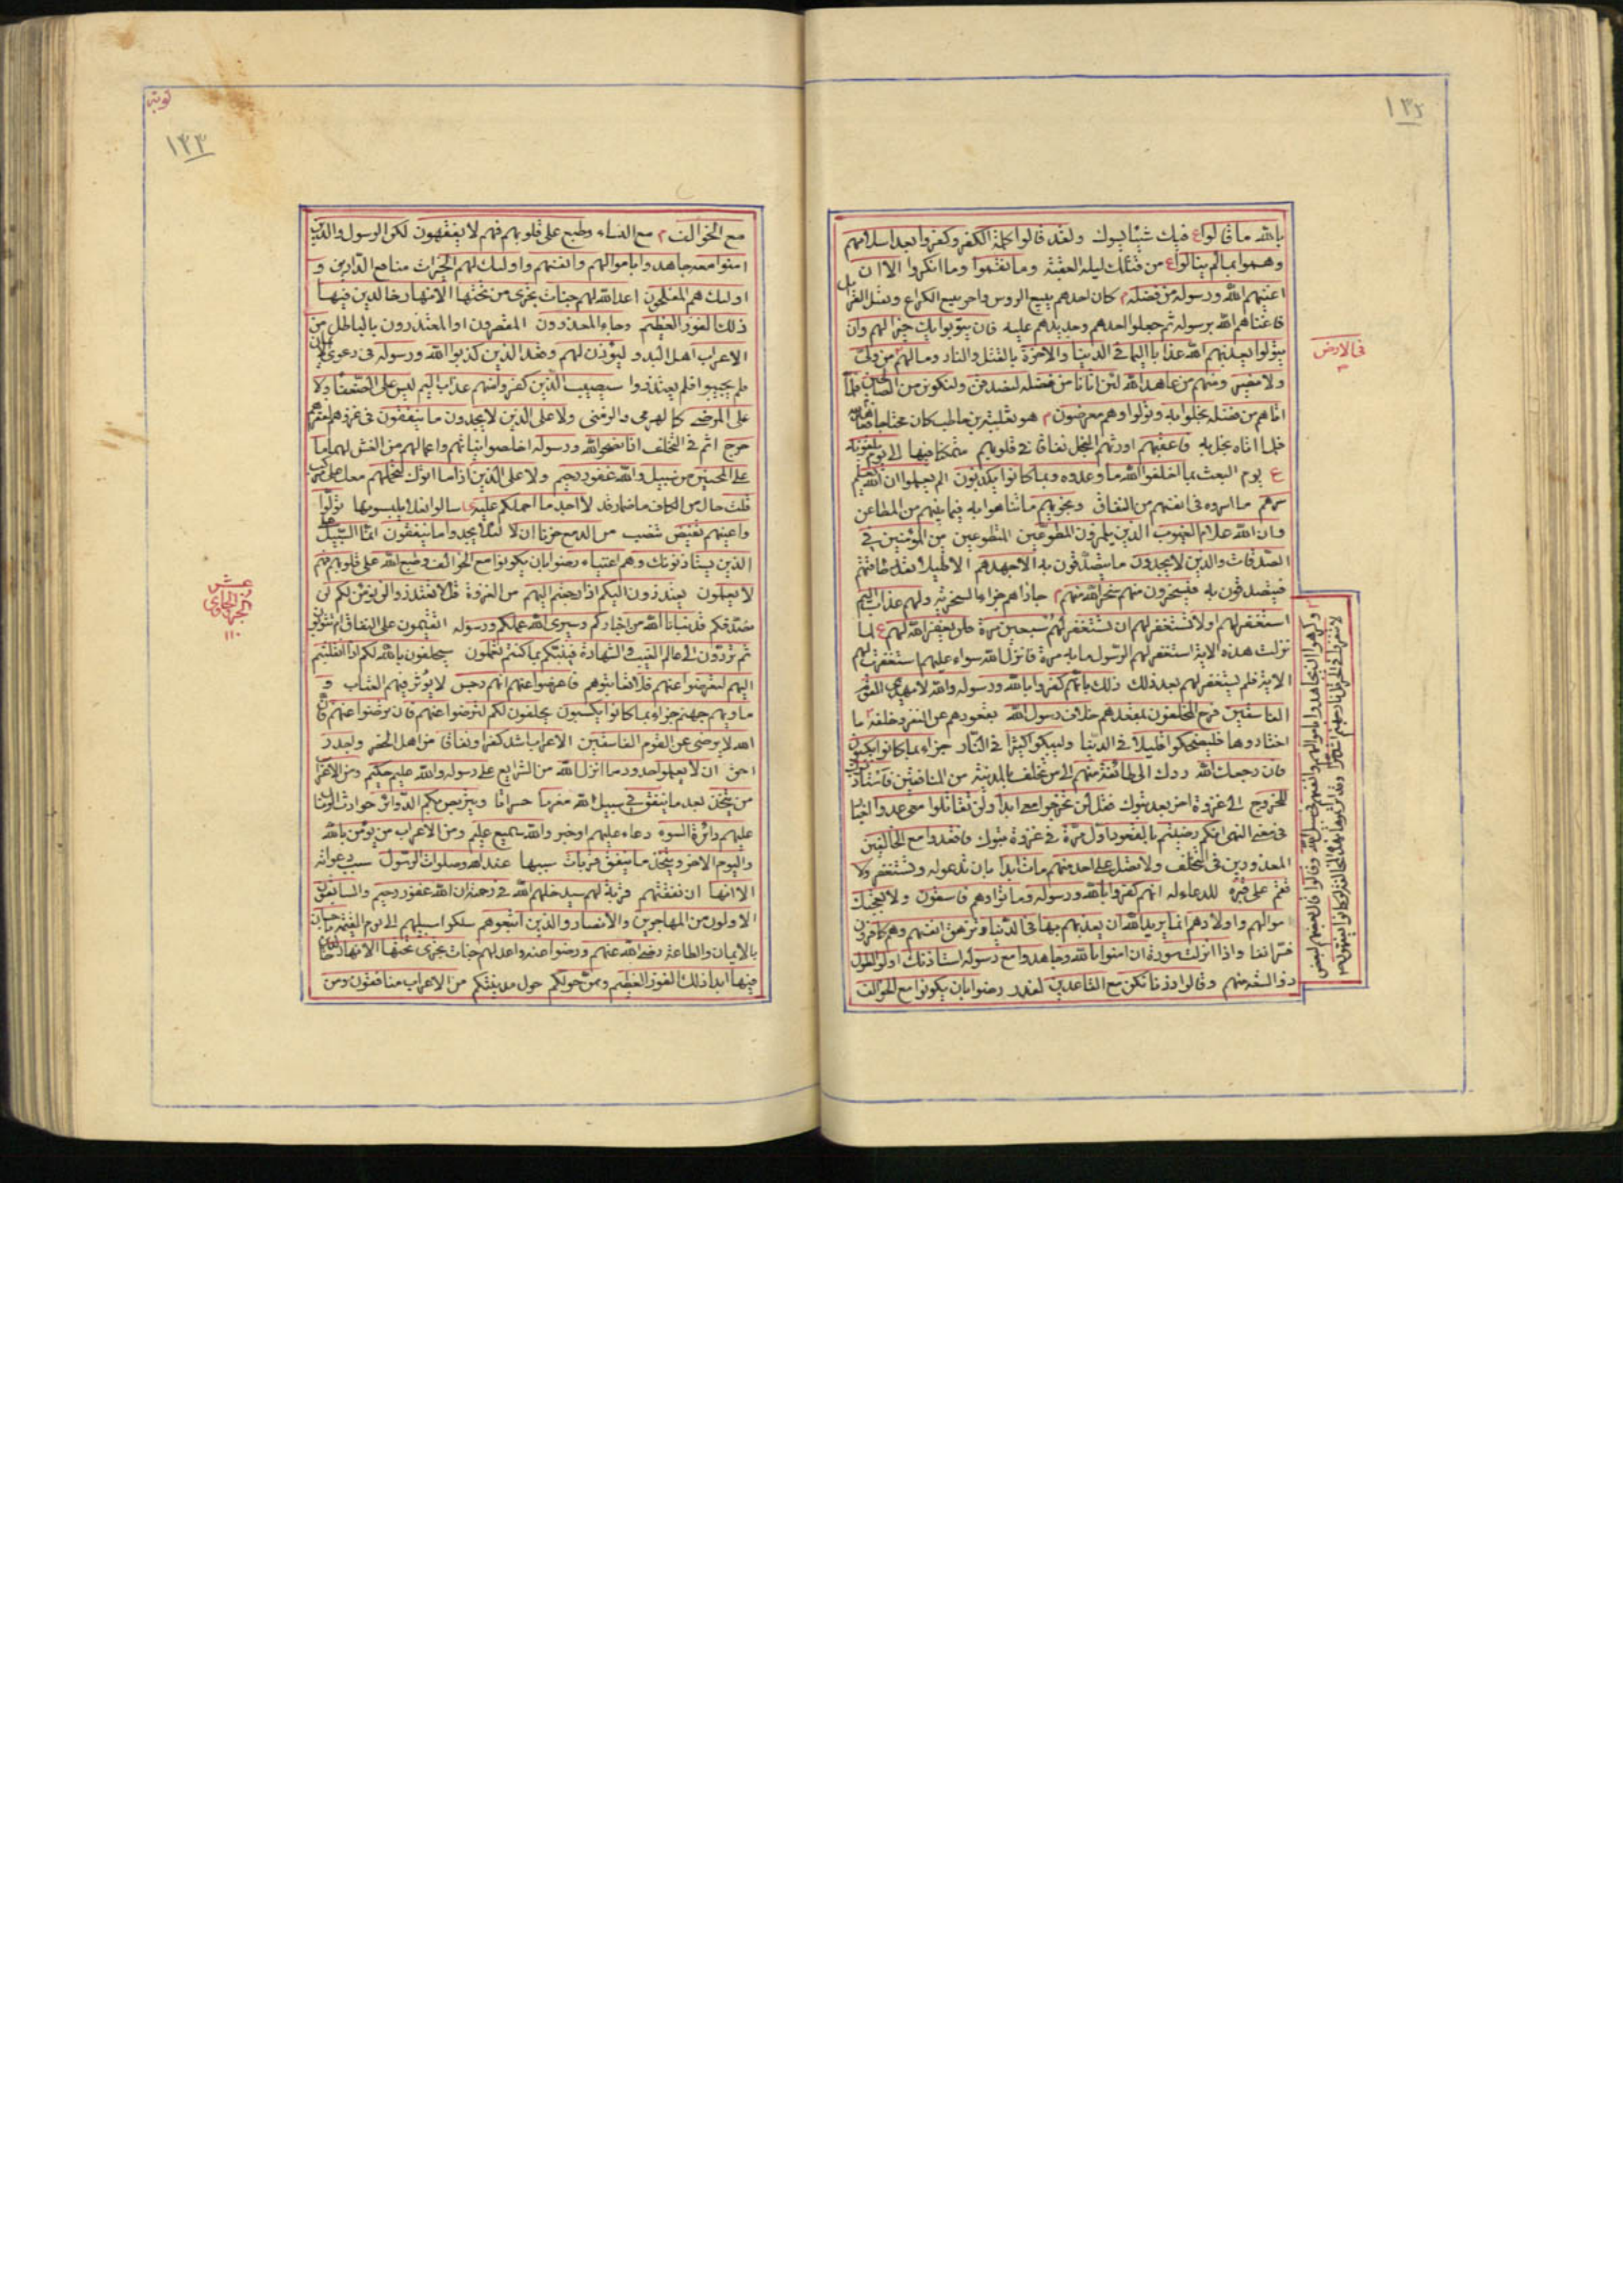 ١٣٢
بالله ما قالوا ع فيك شيئا يسوك ولقد قالوا كلمة الكفر وكفروا بعد اسلامهم
وهموا بما لم ينالوا ع من قتلك ليلة العقبة وما نقموا وما انكروا الا ان
اغنيهم الله ورسوله من فضله م كان احدهم يبيع الروس واخر يبيع الكراع
فاغناهم الله برسوله ثم جعلوا احدهم وحديدهم عليه فان يتوبوا يك خيرا لهم وان
يتولوا يعذبهم الله عذابا اليما في الدنيا والاخرة بالقتل والنار وما لهم من ولي
في الارض
ولا نصير ومنهم من عاهد الله لئن اتانا من فضله لنصدقن ولنكونن من الصالحين فلما
اتاهم من فضله بخلوا به وتولوا وهم معرضون م هو ثعلبة بن حاطب كان محتاجا
فلما اتاه بخل به فاعقبهم اورثهم البخل نفاقا في قلوبهم متمكنا فيها الى يوم يلقونه
ع يوم البعث بما اخلفوا الله ما وعدوه وبما كانوا يكذبون الم يعلموا ان الله يعلم
سرهم ما اسروه في انفسهم من النفاق ونجويهم ما تناجوا به فيما بينهم من المطاعن
وان الله علام الغيوب الذين يلمزون المطوعين المتطوعين من المؤمنين في
الصدقات والذين لا يجدون ما يتصدقون به الا جهدهم الا قليلا بقدر طاقتهم
فيتصدقون به فيسخرون منهم سخر الله منهم م جازاهم جزاء السخرية ولهم عذاب اليم
استغفر لهم اولا تستغفر لهم ان تستغفر لهم سبعين مرة فلن يغفر الله لهم ع لما
نزلت هذه الاية استغفر لهم الرسول مايه مرة فانزل الله سواء عليهم استغفرت لهم
الاية فلم يستغفر لهم بعد ذلك ذلك بانهم كفروا بالله ورسوله والله لا يهدي القوم
الفاسقين فرح المخلفون بمقعدهم خلاف رسول الله بقعودهم عن الغزو خلفه
وكرهوا ان يجاهدوا باموالهم وانفسهم في سبيل الله وقالوا قال بعضهم لبعض
لا تنفروا في الحر قل نار جهنم اشد حرا وقد اثرتموها بهذه المخالفة لو كانوا يفقهون
اختاروها فليضحكوا قليلا في الدنيا وليبكوا كثيرا في النار جزاء بما كانوا يكسبون
فان رجعك الله ردك الى طائفة منهم الى من تخلف بالمدينة من المنافقين فاستاذنوك
للخروج الى غزوة اخر بعد تبوك فقل لن تخرجوا معي ابدا ولن تقاتلوا معي عدوا
في معنى النهي انكم رضيتم بالقعود اول مرة في غزوة تبوك فاقعدوا مع الخالفين
المعذورين في التخلف ولا تصل على احد منهم مات ابدا بان تدعو له وتستغفر ولا
تقم على قبره للدعاء له انهم كفروا بالله ورسوله وماتوا وهم فاسقون ولا تعجبك
اموالهم واولادهم انما يريد الله ان يعذبهم بها في الدنيا وتزهق انفسهم وهم كافرون
واذا انزلت سورة ان امنوا بالله وجاهدوا مع رسوله استاذنك اولوا الطول
ذو السعة منهم وقالوا ذرنا نكن مع القاعدين رضوا بان يكونوا مع الخوالف
توبه
١٣٣
مع الخوالف م مع النساء وطبع على قلوبهم فهم لا يفقهون لكن الرسول والذين
امنوا معه جاهدوا باموالهم وانفسهم واولئك لهم الخيرات منافع الدارين و
اولئك هم المفلحون اعد الله لهم جنات تجري من تحتها الانهار خالدين فيها
ذلك الفوز العظيم وجاء المعذرون المقصرون او المعتذرون بالباطل من
الاعراب اهل البدو ليؤذن لهم وقعد الذين كذبوا الله ورسوله في دعوى
فلم يجيبوا فلم يعتذروا سيصيب الذين كفروا منهم عذاب اليم ليس على الضعفاء ولا
على المرضى كالهرمى والزمنى ولا على الذين لا يجدون ما ينفقون في غزوهم
حرج اثم في التخلف اذا نصحوا لله ورسوله اخلصوا نياتهم واعمالهم من الغش لهما ما
على المحسنين من سبيل والله غفور رحيم ولا على الذين اذا ما اتوك لتحملهم معك
قلت حال من الكاف باضمار قد لا اجد ما احملكم عليه تولوا
واعينهم تفيض تنصب من الدمع حزنا ان لا لئلا يجدوا ما ينفقون انما السبيل على
الذين يستاذنونك وهم اغنياء رضوا بان يكونوا مع الخوالف وطبع الله على قلوبهم فهم
لا يعلمون يعتذرون اليكم اذا رجعتم اليهم من الغزوة قل لا تعتذروا لن نؤمن لكم لن
عشر
الجزء الحادي
١١٠
نصدقكم قد نبانا الله من اخباركم وسيرى الله عملكم ورسوله اتقيمون على النفاق ام تتوبون
ثم تردون الى عالم الغيب والشهادة فينبئكم بما كنتم تعملون سيحلفون بالله لكم اذا انقلبتم
اليهم لتعرضوا عنهم فلا تعاتبوهم فاعرضوا عنهم انهم رجس لا يؤثر فيهم العتاب و
ماويهم جهنم جزاء بما كانوا يكسبون يحلفون لكم لترضوا عنهم فان ترضوا عنهم فان
الله لا يرضى عن القوم الفاسقين الاعراب اشد كفرا ونفاقا من اهل الحضر واجدر
احق ان لا يعلموا حدود ما انزل الله من الشرايع على رسوله والله عليم حكيم ومن الاعراب
من يتخذ يعد ما ينفق في سبيل الله مغرما خسرانا ويتربص بكم الدوائر حوادث الزمان
عليهم دائرة السوء دعاء عليهم او خبر والله سميع عليم ومن الاعراب من يؤمن بالله
واليوم الاخر ويتخذ ما ينفق قربات سببها عند الله وصلوات الرسول سبب دعواته
الا انها ان نفقتهم قربة لهم سيدخلهم الله في رحمته ان الله غفور رحيم والسابقون
الاولون من المهاجرين والانصار والذين اتبعوهم سلكوا سبيلهم الى يوم القيمة باحسان
بالايمان والطاعة رضي الله عنهم ورضوا عنه واعد لهم جنات تجري تحتها الانهار خالدين
فيها ابدا ذلك الفوز العظيم وممن حولكم حول مدينتكم من الاعراب منافقون ومن